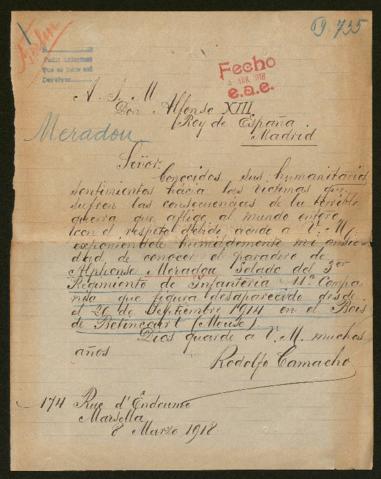 P. 735
Fecho
MAR. 1918
e.a.e.
A. S. M.
Don Alfonso XIII
Rey de España
Madrid
Meradou
Señor.
Conocidos sus humanitarios
sentimientos hacia las victimas que
sufren las consecuencias de la terrible
guerra que aflige al mundo entero
con el respeto debido, acudo a V. M.
exponiendole humildemente mi ansie
dad, de conocer el paradero de
Alphonse Meradou Soldado del 3er
Regimiento de Infanteria 11ª Compa
ñia que figura desaparecido desde
el 20 de Septiembre 1914 en el Bois
de Betincourt (Meuse).
Dios guarde a V. M. muchos
años
Rodolfo Camacho
174 Rue d'Endoume
Marsella
8 Marzo 1918